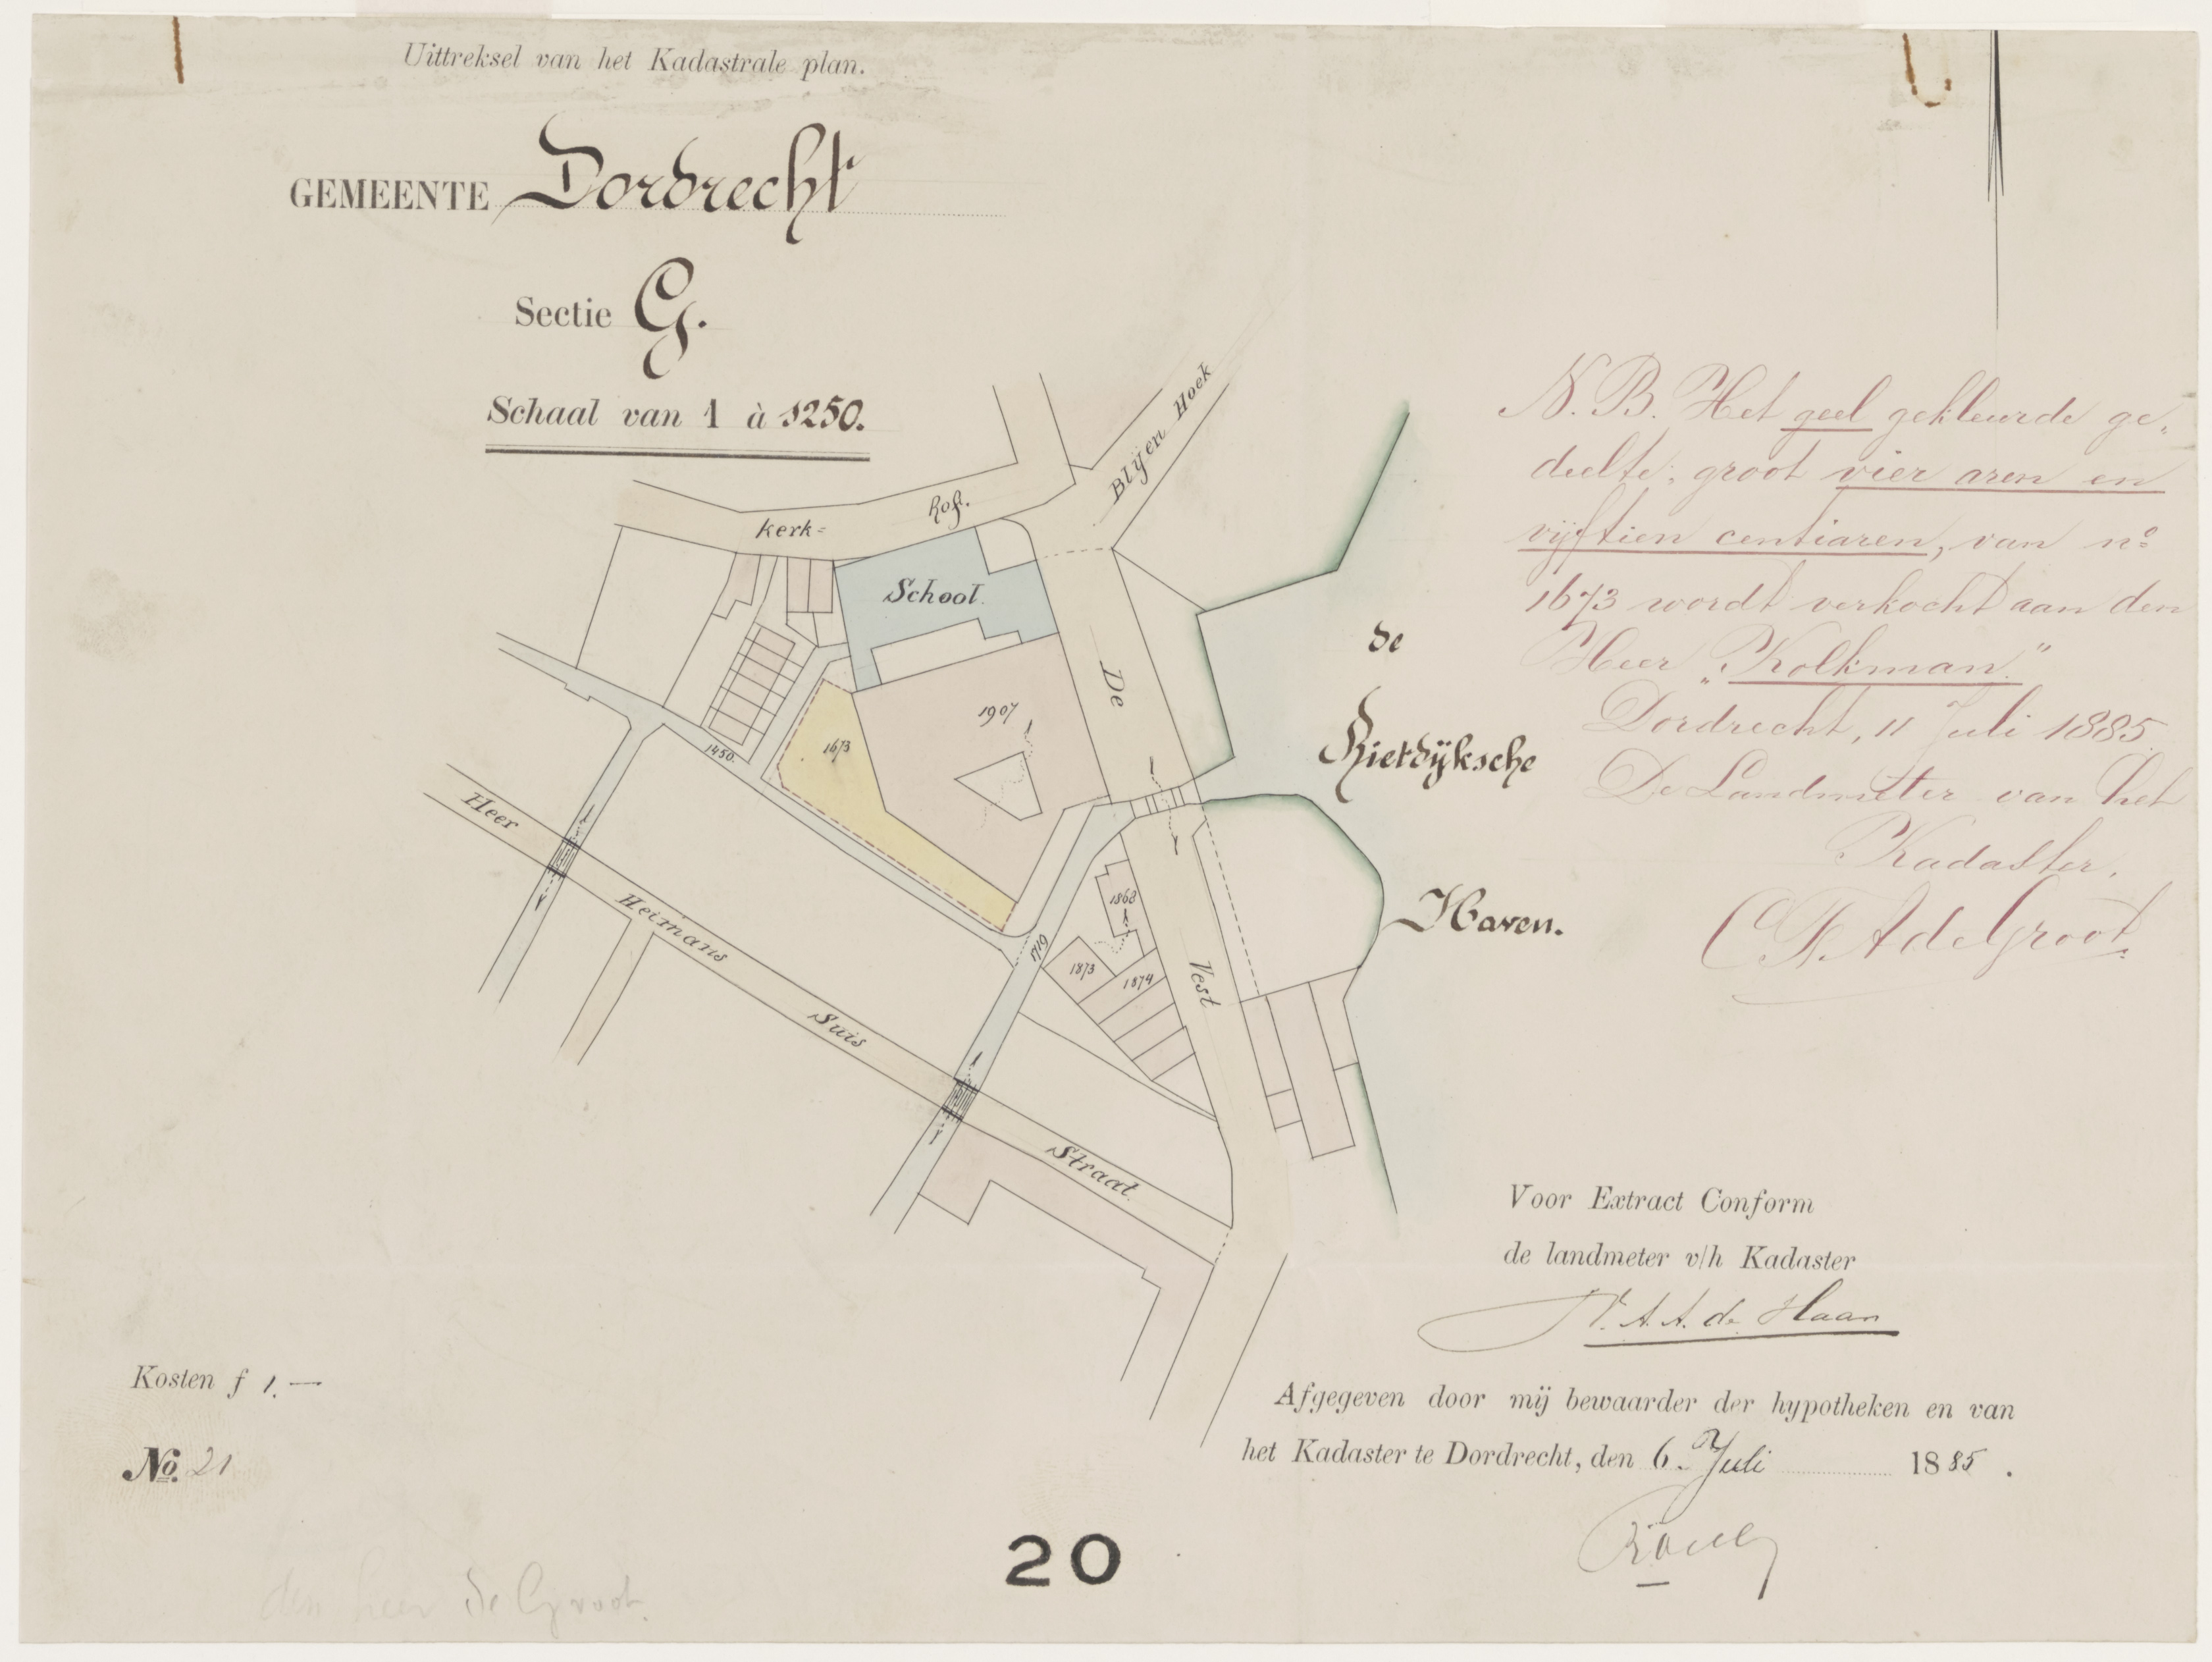 Uittreksel van het Kadastrale plan.
GEMEENTE Dordrecht
Sectie G.
Schaal van 1 à 1250.
Blijen Hoek
kerk=
hof.
School.
De
1907
1673
1450.
Heer
Heimans
Suis
Straat.
1719
1868
1873
1874
Vest
de
Rietdijksche
Haven.
N.B. Het geel gekleurde ge-
deelte, groot vier aren en
vijftien centiaren, van no
1673 wordt verkocht aan den
Heer „Kolkman."
Dordrecht, 11 Juli 1885.
De Landmeter van het
Kadaster,
de Groot.
Voor Extract Conform
de landmeter v/h Kadaster
A. A. de Haan
Afgegeven door mij bewaarder der hypotheken en van
het Kadaster te Dordrecht, den 6. Juli 1885.
Kosten f 1.—
No. 21
20
den heer de Groot.